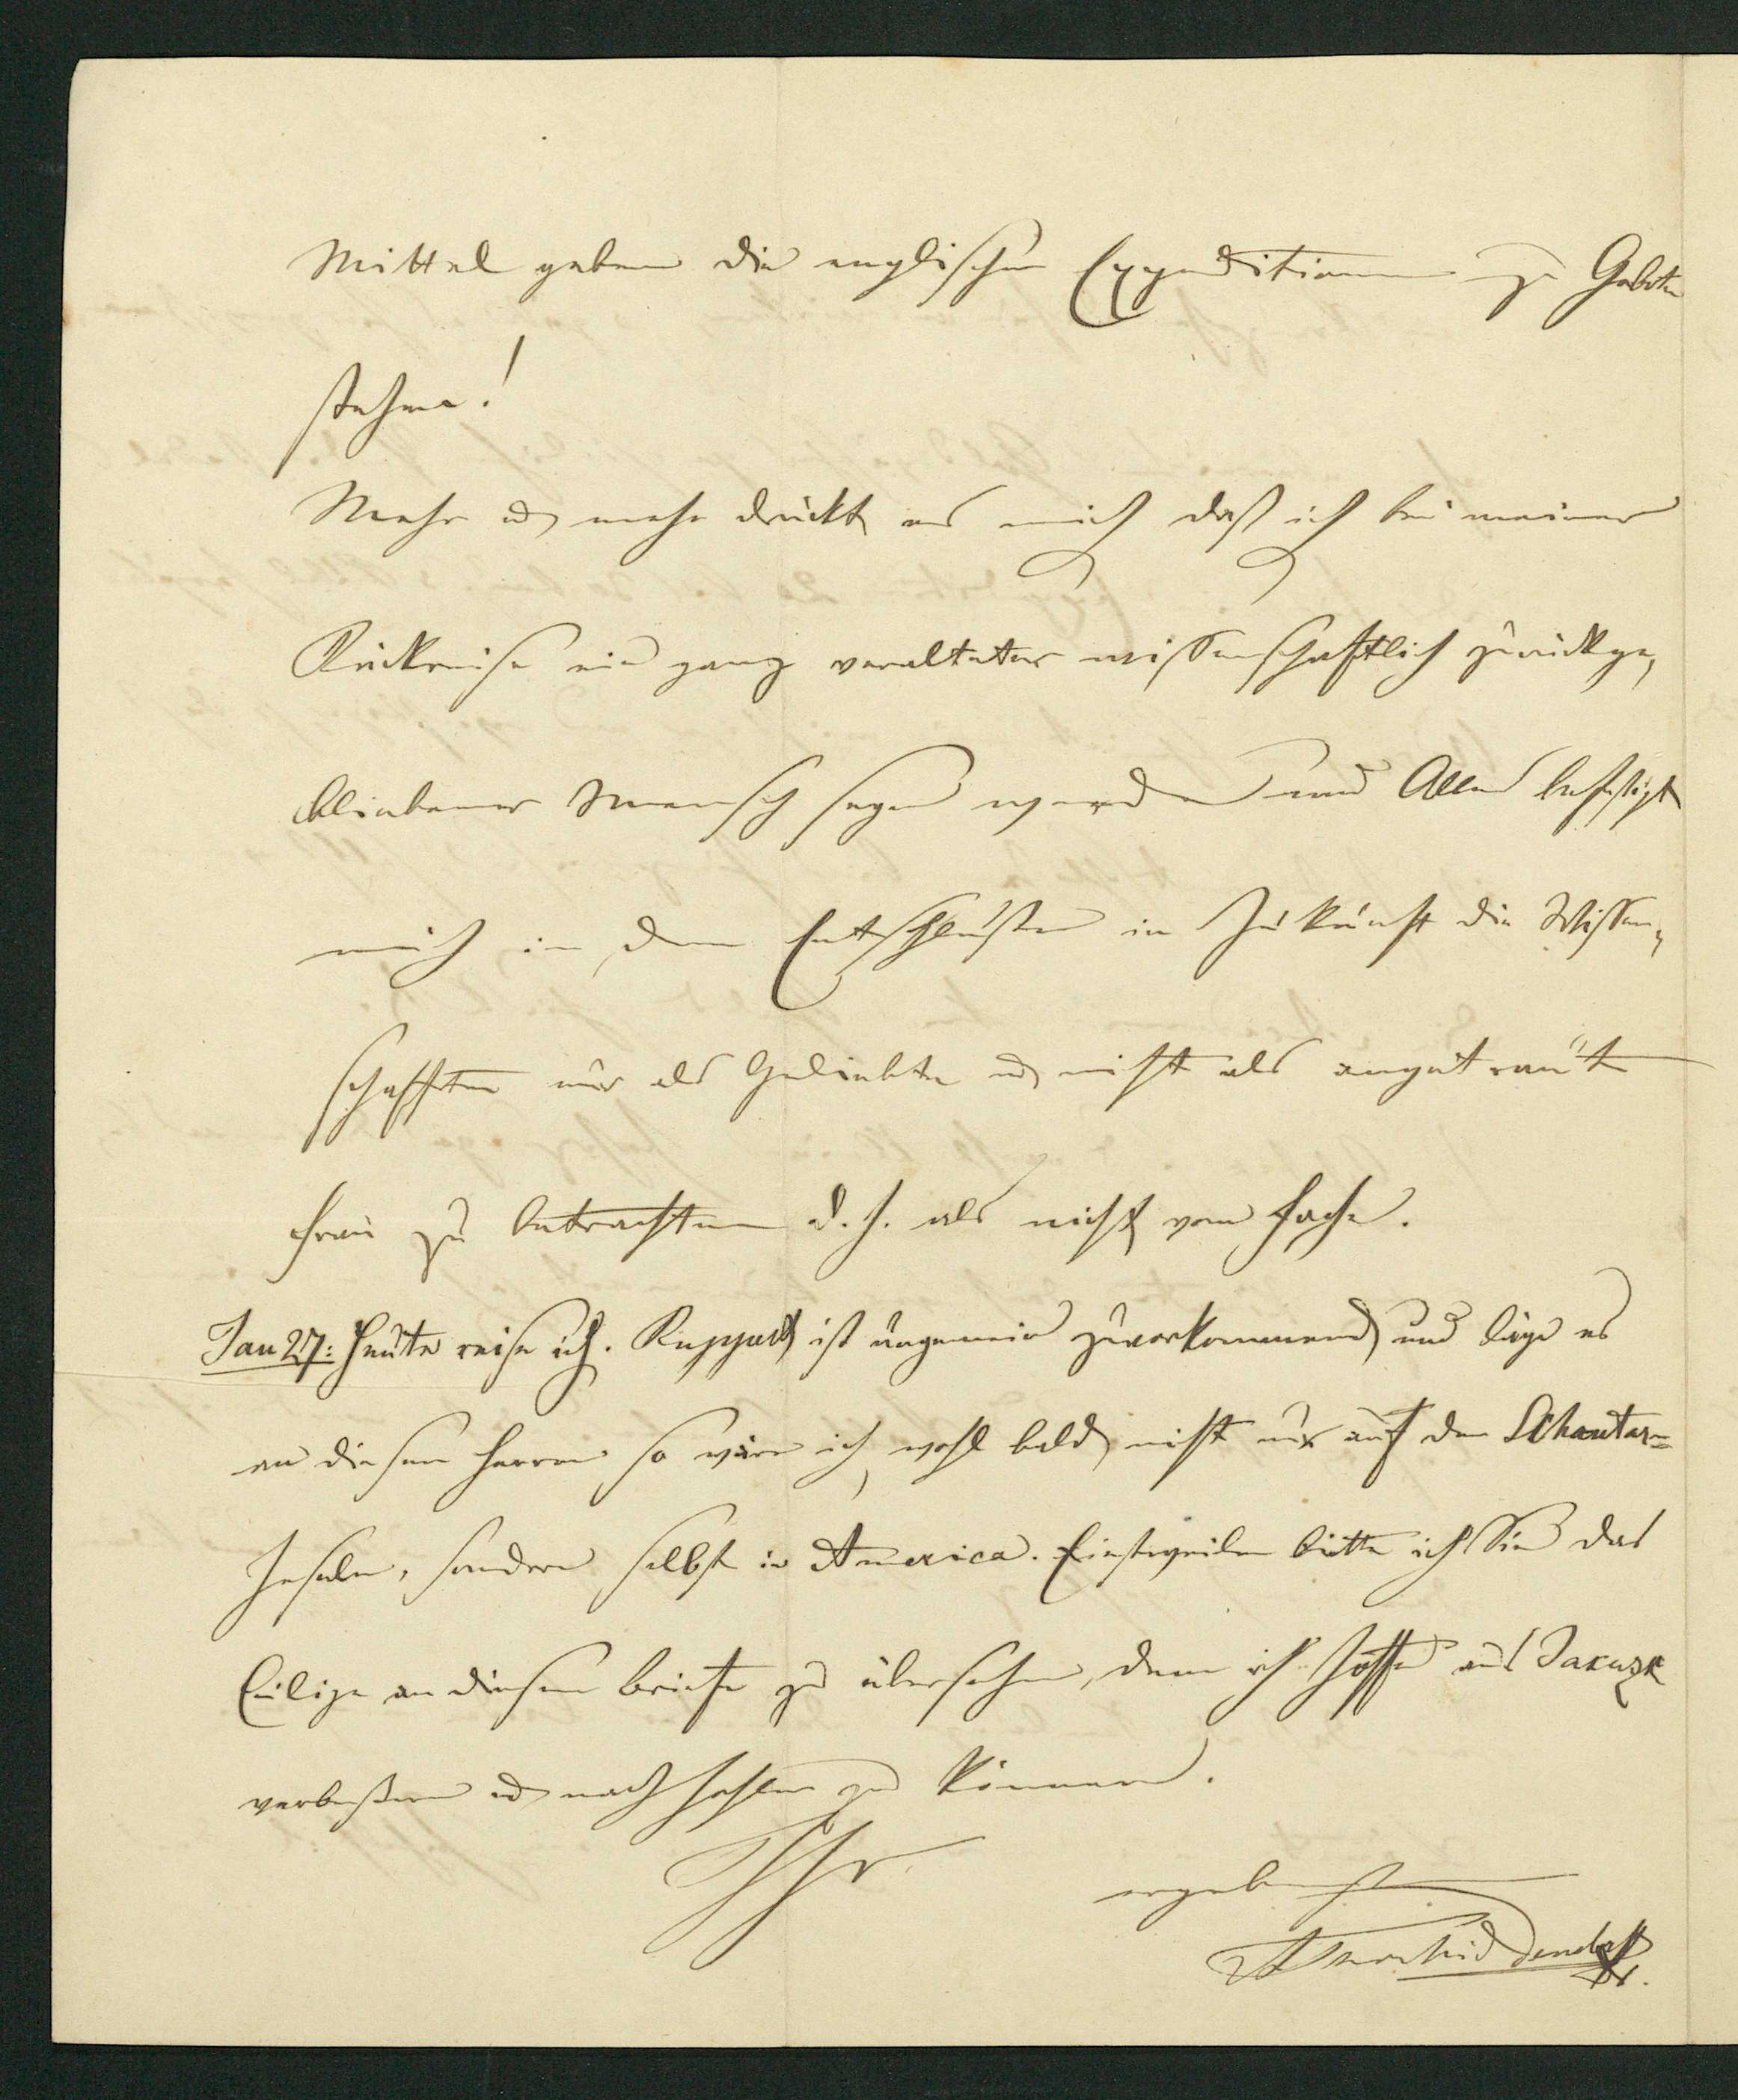 Mittel geben die englischen Expeditionen zu Gebote
stehen!
Mehr u mehr drückt es mich daß ich bei meiner
Rückreise ein ganz veralteter wissenschaftlich zurückge-
bliebener Mensch seyn werde und Alles befestigt
mich in dem Entschluße in Zukunft die Wissen-
schaften nur als Geliebte u nicht als angetraute
Frau zu betrachten d. h. als nicht vom Fache.
Jan 27: Heute reise ich. ist ungemein zuvorkommend und läge es
an diesem Herren so wäre ich wohl bald nicht nur auf den Schantar-
Inseln, sondern selbst in America. Einstweilen bitte ich Sie das
Eilige an diesem Briefe zu übersehen, denn ich hoffe aus Jakuzk
verbeßern u nachhohlen zu können.
Ihr
ergebenster
A v Middendorff